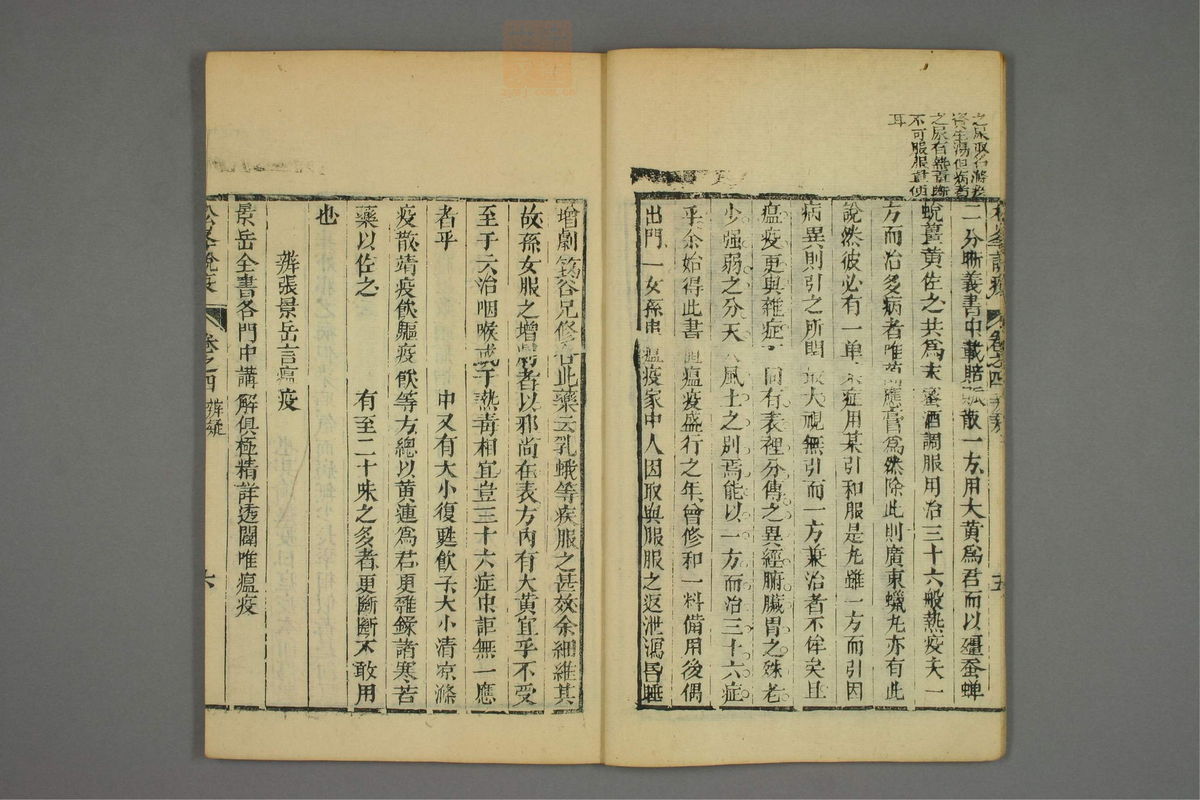 之尿取名溺疫
資生湯但病者
之尿有雜
不可服服童便
耳
二分晰義書中載賠瓠散一方用大黃為君而以殭蚕蟬
蛻薑黃佐之共為末蜜酒調服用治三十六般熱疫夫一
方而治多病者唯萬應膏為然除此則廣東蠟丸亦有此
說然彼必有一单某症用某引和服是丸雖一方而引因
病異則引之所関最大視無引而一方兼治者不侔矣且
瘟疫更與雜症不同有表裡分傳之異經腑臟胃之殊老
少强弱之分天人風土之別焉能以一方而治三十六症
乎余始得此書值瘟疫盛行之年曾修和一料備用後偶
出門一女孫患瘟疫家中人因取與服服之返泄瀉昏睡
松峯說疫
卷之四
五
增劇筠谷兄修合此藥云乳蛾等疾服之甚效余細維其
故孫女服之增劇者以邪尚在表方內有大黃宜乎不受
至于云治咽喉或于熱毒相宜豈三十六症中詎無一應
者乎 中又有大小復甦飲子大小清凉滌
疫散靖疫飲驅疫飲等方總以黃連為君更雜錄諸寒苦
藥以佐之 有至二十味之多者更斷斷不敢用
也
辨張景岳言瘟疫
景岳全書各門中講解俱極精詳透闢唯瘟疫
松峯說疫
卷之四
辨疑
六